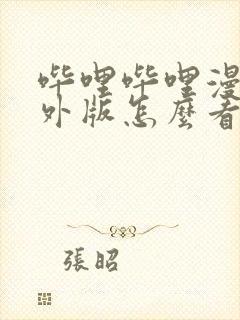 哔哩哔哩漫
外版怎麼看
張昭